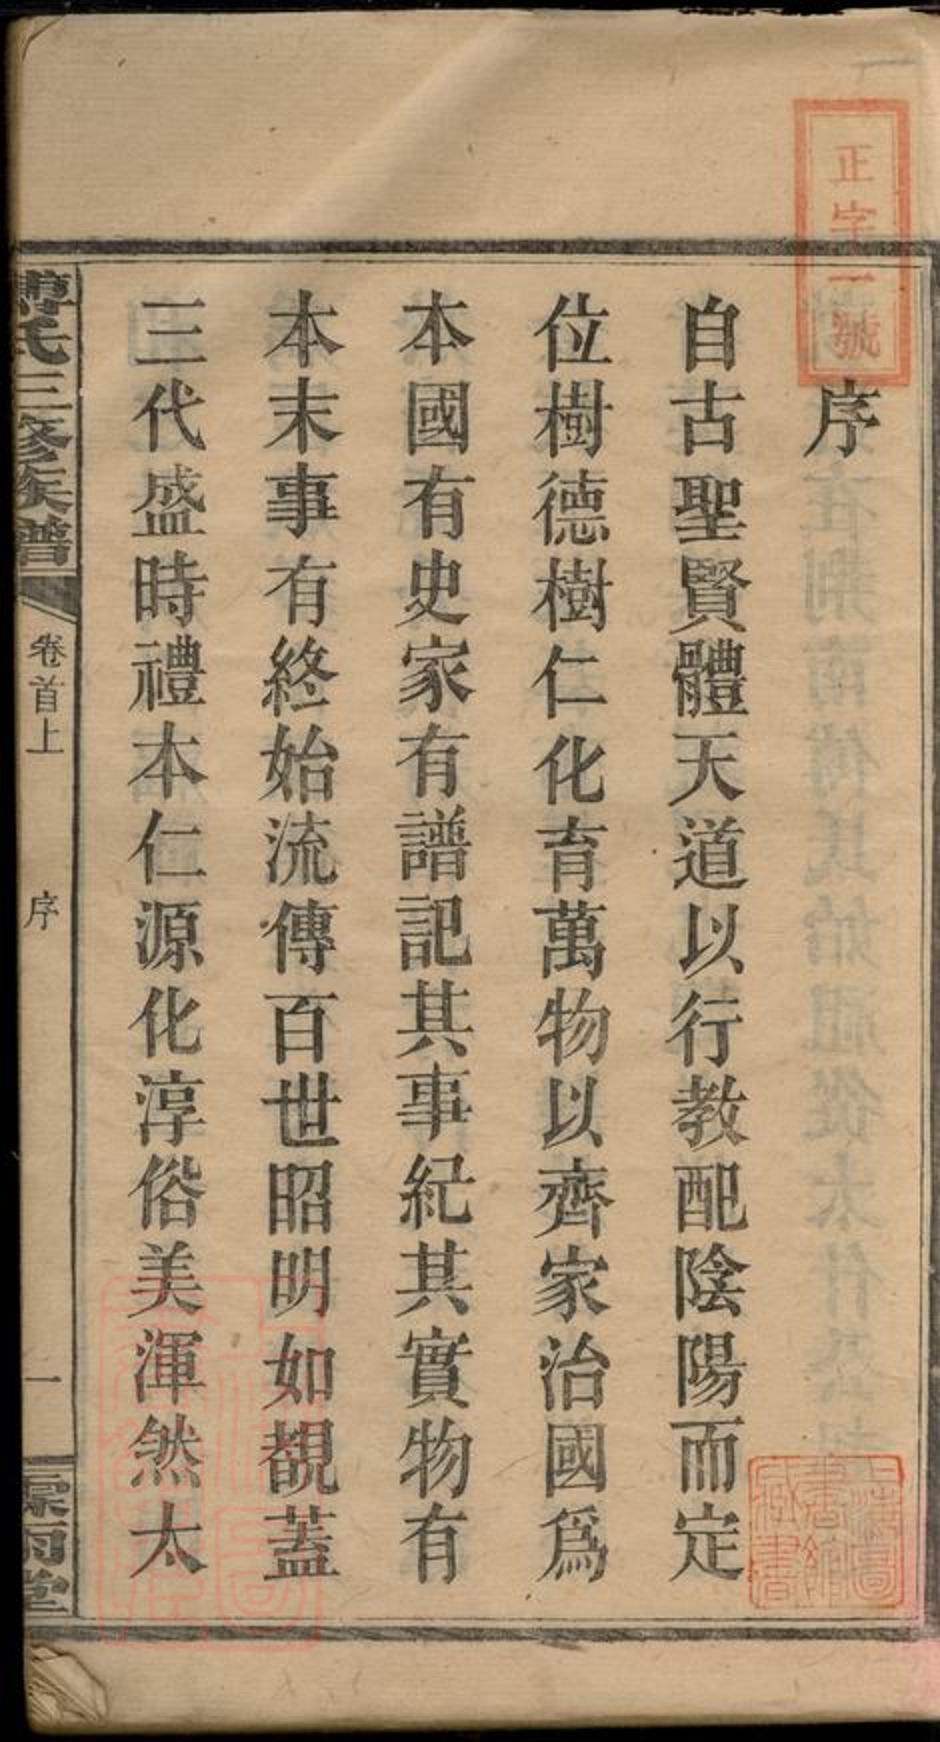 正字一號
序
自古聖賢體天道以行教配陰陽而定
位樹德樹仁化育萬物以齊家治國爲
本國有史家有譜記其事紀其實物有
本末事有終始流傳百世昭明如覩蓋
三代盛時禮本仁源化淳俗美渾然太
傅氏三修族譜
卷首上
序
一
霖雨堂